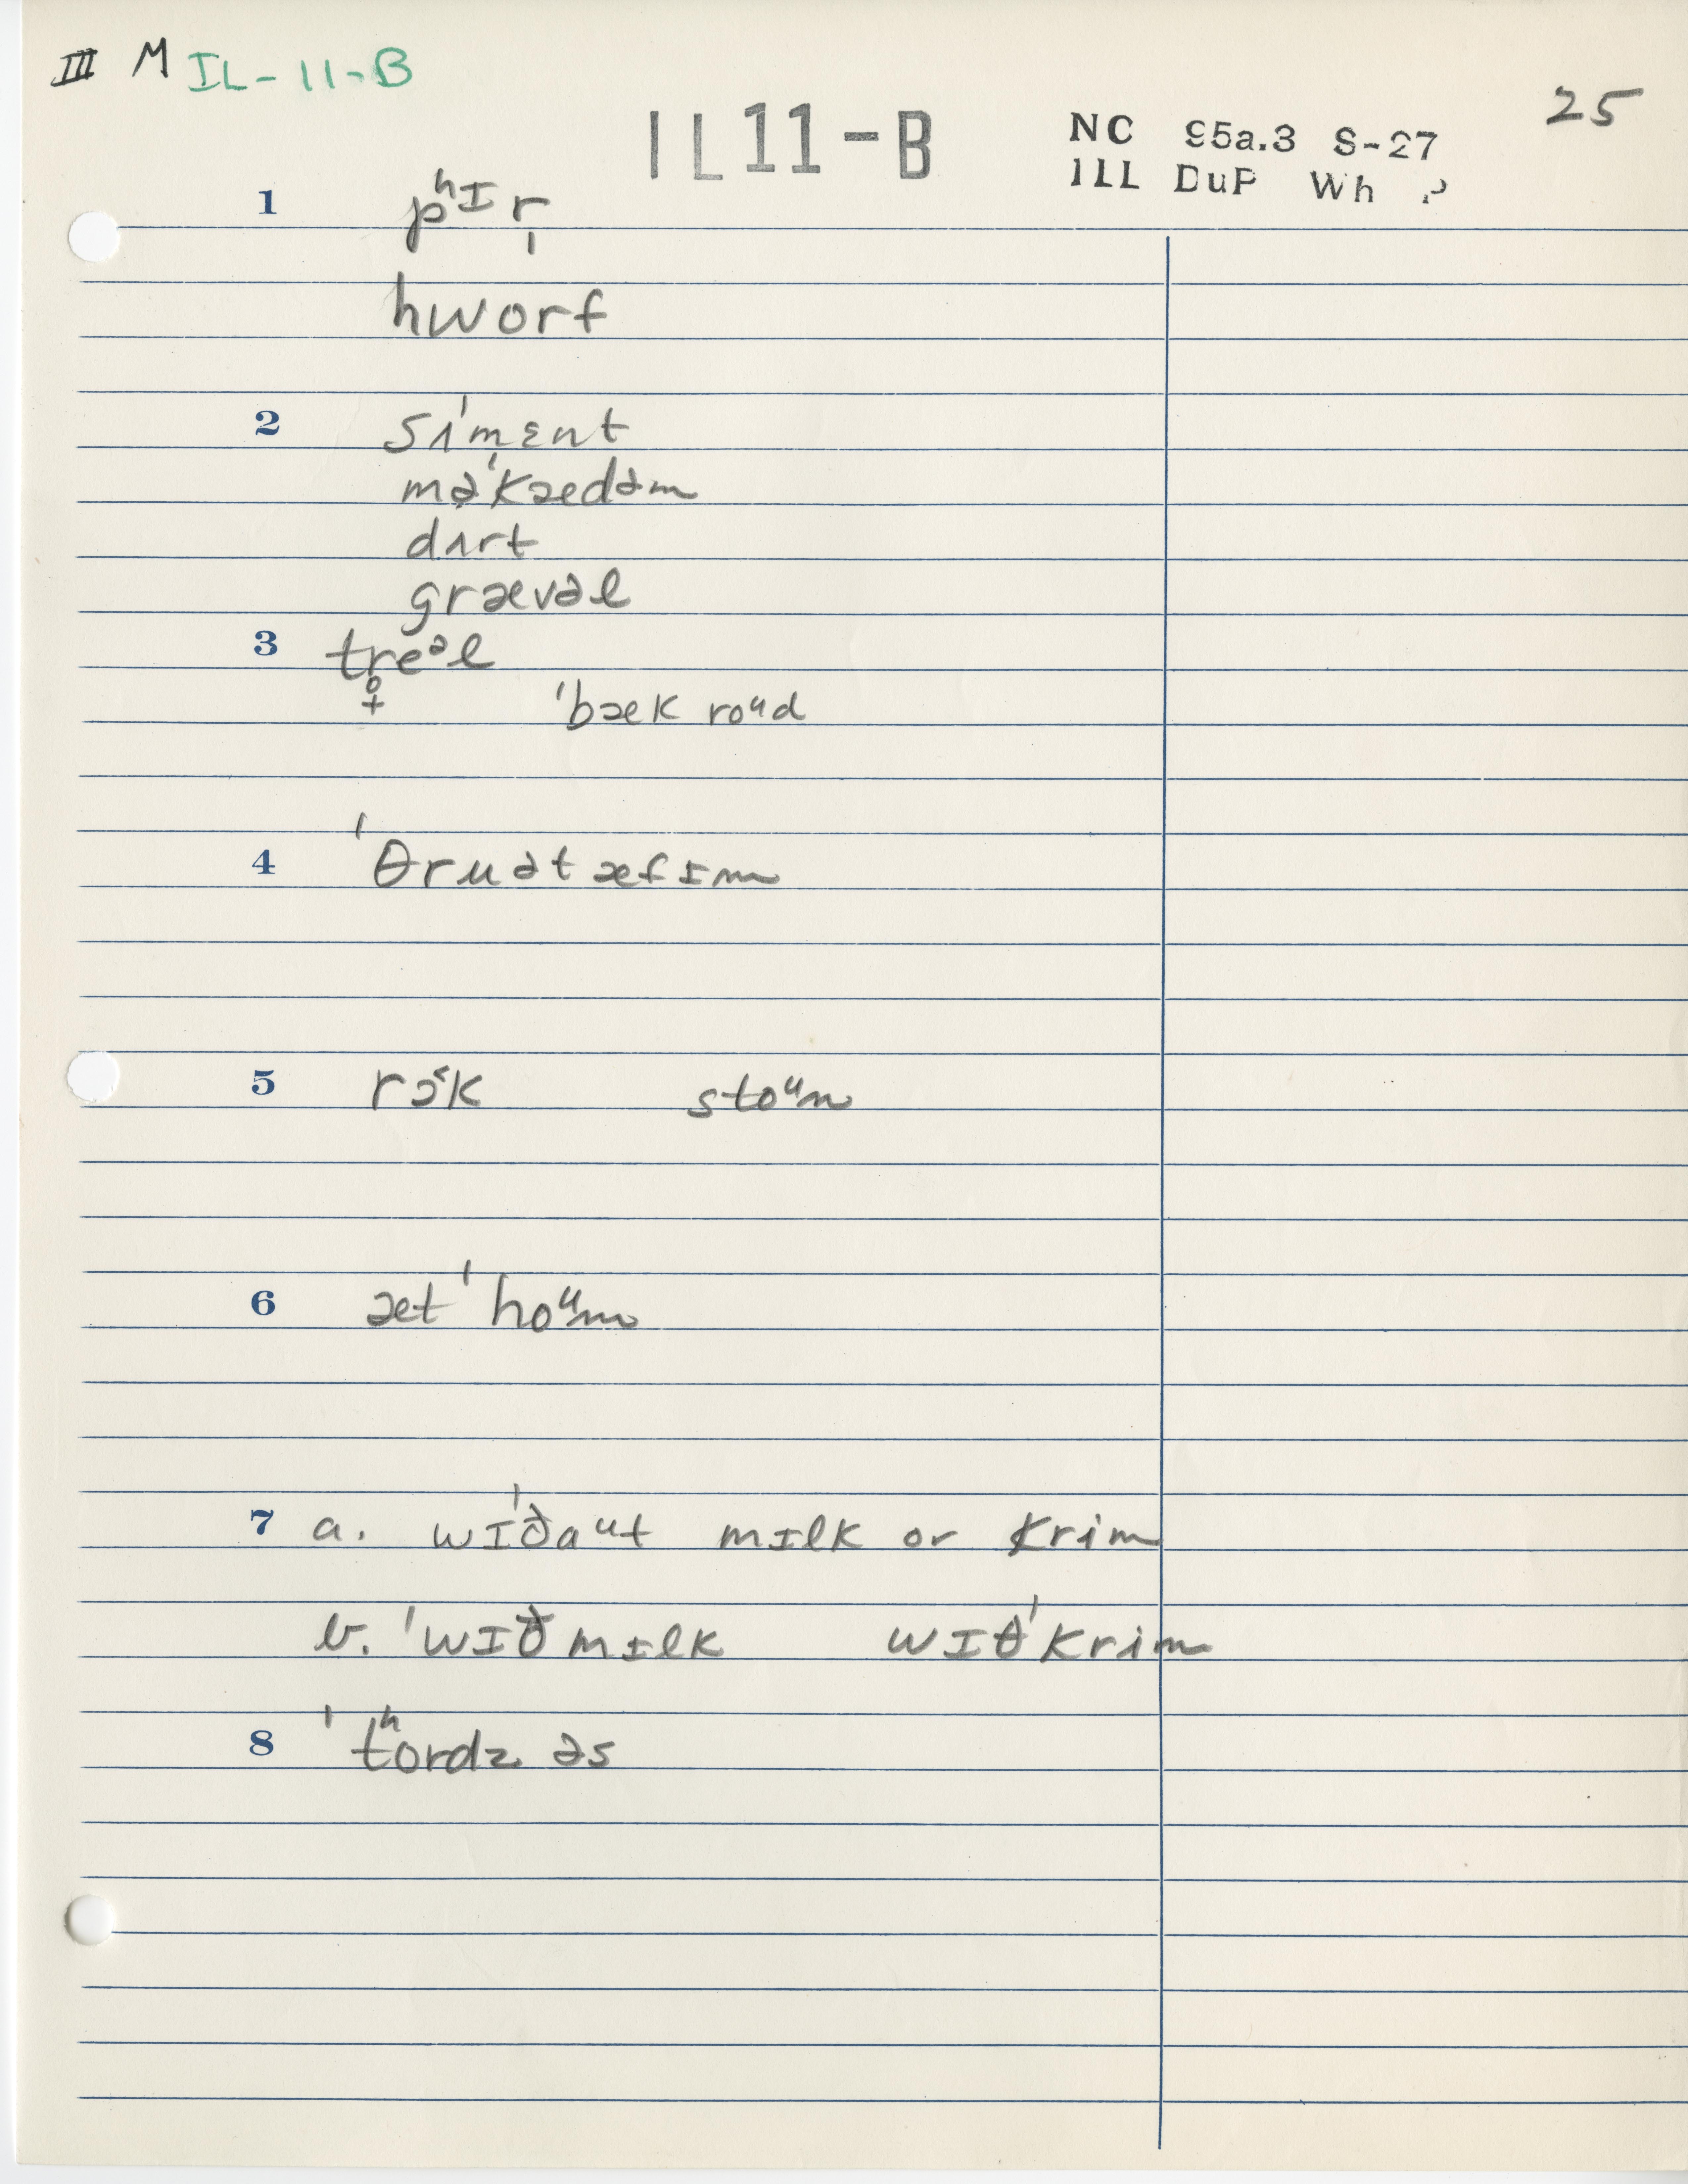 III M IL-11-B
25
IL11-B
NC 95a.3 S-27
ILL DuP Wh
1 pʰɪr̩
hworf
2 sɪˈmɛnt
məˈkædəm
dʌrt
grævəl
3 tr̥eᵊl
+
ˈbæk roᵘd
4 ˈθruət æfɪm
5 rɔ˂k stoᵘn
6 æt ˈhoᵘm
7 a. wɪˈðaᵘt mɪlk or krim
b. ˈwɪð mɪlk wɪθˈkrim
8 ˈtʰordz əs